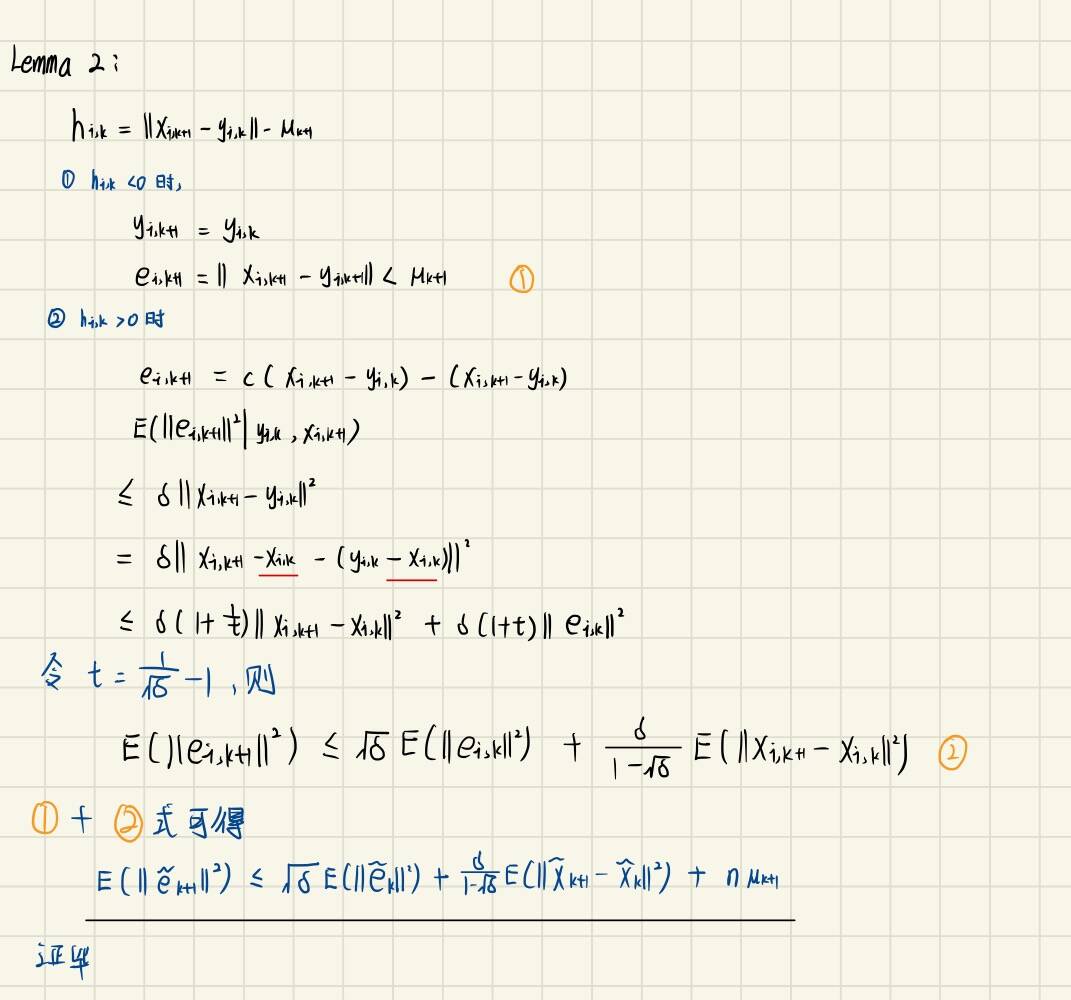 Lemma 2:
h_{i,k} = ||x_{i,k+1} - y_{i,k}|| - μ_{k+1}
① h_{i,k} <0 时,
y_{i,k+1} = y_{i,k}
e_{i,k+1} = || x_{i,k+1} - y_{i,k+1}|| < μ_{k+1} ①
② h_{i,k} >0 时
e_{i,k+1} = c ( x_{i,k+1} - y_{i,k}) - (x_{i,k+1} - y_{i,k})
E(||e_{i,k+1}||² | y_{i,k} , x_{i,k+1})
≤ δ || x_{i,k+1} - y_{i,k}||²
= δ|| x_{i,k+1} - x_{i,k} - (y_{i,k} - x_{i,k})||²
≤ δ ( 1+ 1/t) || x_{i,k+1} - x_{i,k}||² + δ (1+t) || e_{i,k}||²
令 t = 1/√δ - 1 , 则
E(||e_{i,k+1}||²) ≤ √δ E(||e_{i,k}||²) + δ/(1-√δ) E(||x_{i,k+1} - x_{i,k}||²) ②
① + ② 式可得
E(|| ẽ_{k+1}||²) ≤ √δ E(||ẽ_k||²) + δ/(1-√δ) E(||x̃_{k+1} - x̃_k||²) + n μ_{k+1}
证毕